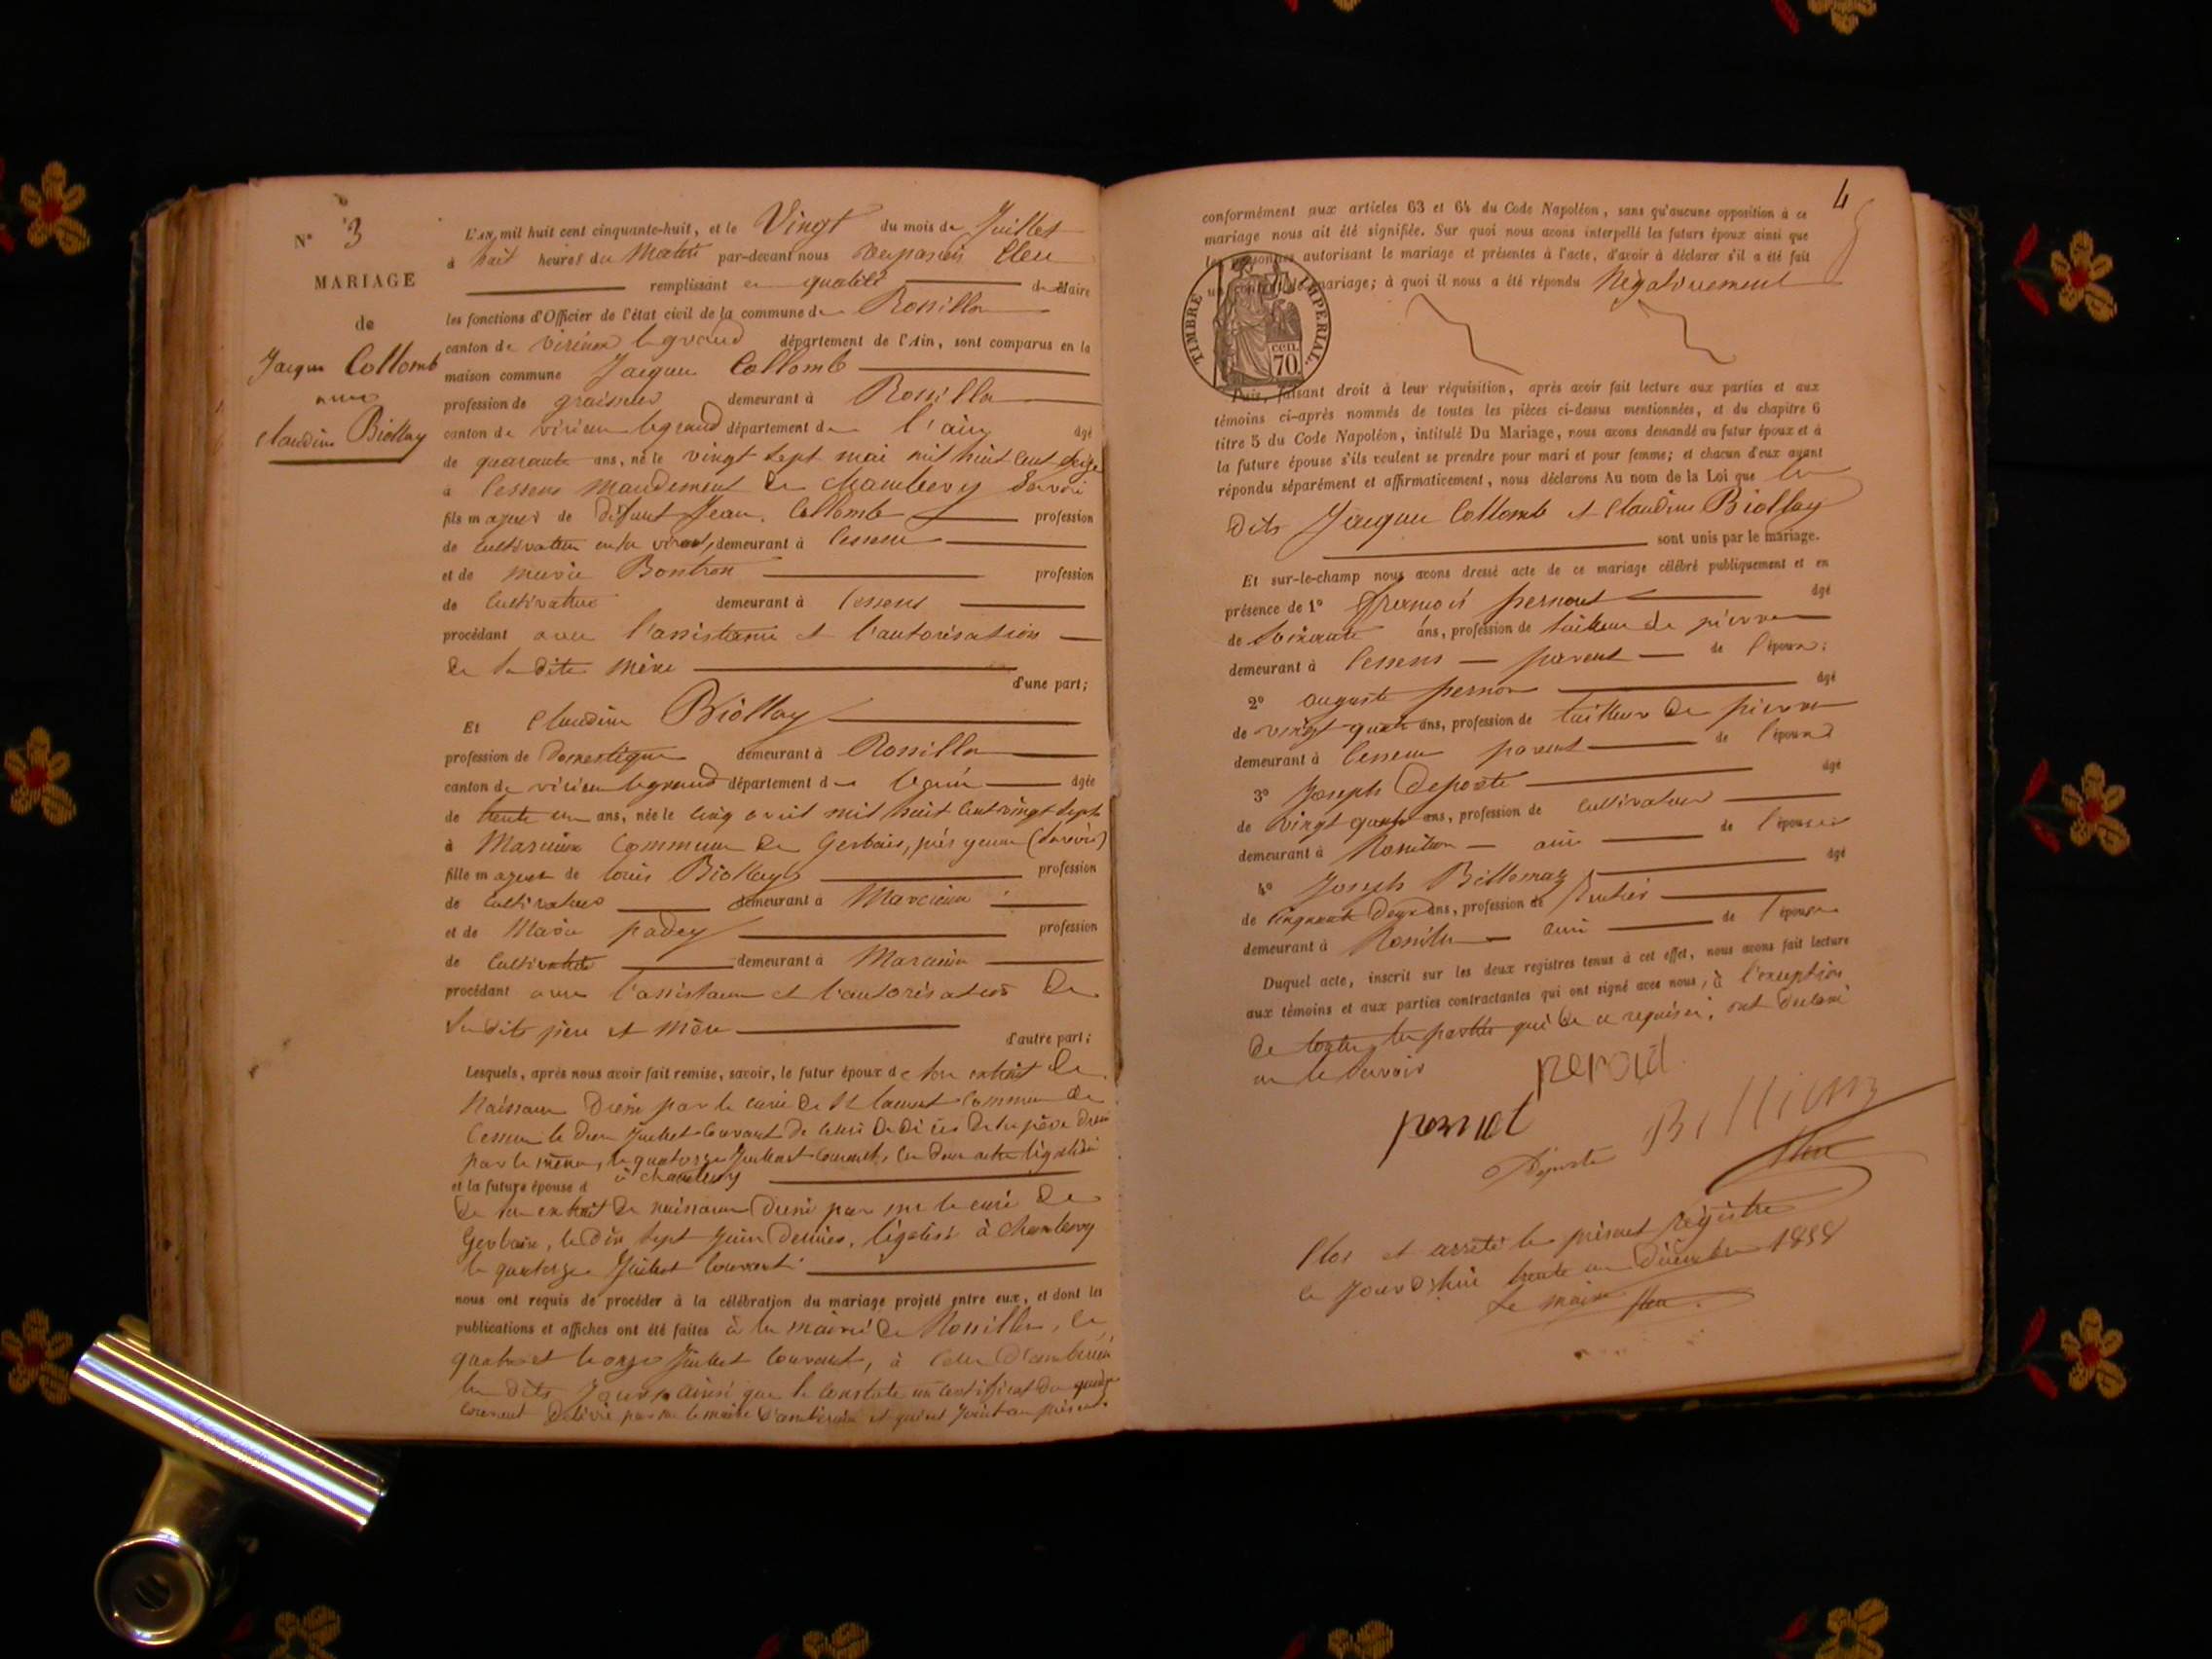 N° 3
MARIAGE
de
Jacques Collomb
avec
Claudine Biollay
L'AN mil huit cent cinquante-huit, et le Vingt du mois de Juillet
à huit heures du Matin par-devant nous
remplissant en qualité de Maire
les fonctions d'Officier de l'état civil de la commune de Rossillon
canton de virieu le grand département de l'Ain, sont comparus en la
maison commune Jacques Collomb
profession de demeurant à Rossillon
canton de virieu le grand département de l'ain âgé
de quarante ans, né le vingt sept mai mil huit cent seize
à Lessens mandement de Chambery Savoie
fils majeur de défunt Jean Collomb profession
de cultivateur en son vivant, demeurant à Lessens
et de marie Bontron profession
de cultivatrice demeurant à Lessens
procédant avec l'assistance et l'autorisation
de sa dite mère
d'une part;
Et Claudine Biollay
profession de Domestique demeurant à Rossillon
canton de virieu le grand département de l'ain âgée
de trente un ans, née le cinq avril mil huit cent vingt sept
à Marcieux Commune de Gerbaix, près yenne (Savoie)
fille majeure de Louis Biollay profession
de cultivateur demeurant à Marcieux
et de Marie padey profession
de cultivatrice demeurant à Marcieux
procédant avec l'assistance et l'autorisation de
ses dits père et mère
d'autre part;
Lesquels, après nous avoir fait remise, savoir, le futur époux de son extrait de
Naissance par le curé de St Commune de
Lessens le Juillet courant de celui de décès de son père
par le même, le quatorze Juillet courant, les deux actes légalisés
et la future épouse d à Chambery
de son extrait de naissance par mr le curé de
Gerbaix, le dix sept Juin dernier, légalisé à Chambery
le quatorze Juillet courant
nous ont requis de procéder à la célébration du mariage projeté entre eux, et dont les
publications et affiches ont été faites à la mairie de Rossillon, le
quatre et le onze Juillet courant, à celle d'ambérieu
les dits jours ainsi que le constate un certificat du
courant délivré par mr le maire d'ambérieu et qui est joint au présent.
4
conformément aux articles 63 et 64 du Code Napoléon, sans qu'aucune opposition à ce
mariage nous ait été signifiée. Sur quoi nous avons interpellé les futurs époux ainsi que
les personnes autorisant le mariage et présentes à l'acte, d'avoir à déclarer s'il a été fait
un contrat de mariage; à quoi il nous a été répondu Négativement
TIMBRE IMPÉRIAL.
70 cen.
Puis, faisant droit à leur réquisition, après avoir fait lecture aux parties et aux
témoins ci-après nommés de toutes les pièces ci-dessus mentionnées, et du chapitre 6
titre 5 du Code Napoléon, intitulé Du Mariage, nous avons demandé au futur époux et à
la future épouse s'ils veulent se prendre pour mari et pour femme; et chacun d'eux ayant
répondu séparément et affirmativement, nous déclarons Au nom de la Loi que les
dits Jacques Collomb et Claudine Biollay
sont unis par le mariage.
Et sur-le-champ nous avons dressé acte de ce mariage célébré publiquement et en
présence de 1° françois pernout âgé
de soixante ans, profession de tailleur de pierre
demeurant à Lessens parent de l'époux;
2° auguste pernou âgé
de vingt quatre ans, profession de tailleur de pierre
demeurant à Lessens parent de l'époux
3° Joseph Deposte âgé
de vingt quatre ans, profession de cultivateur
demeurant à Rossillon ami de l'épouse
4° Joseph Billiemaz âgé
de cinquante deux ans, profession de rentier
demeurant à Rossillon ami de l'épouse
Duquel acte, inscrit sur les deux registres tenus à cet effet, nous avons fait lecture
aux témoins et aux parties contractantes qui ont signé avec nous, à l'exception
de toutes les parties qui de ce requises, ont déclaré
ne le savoir
Clos et arrêté le présent régistre
le Jourd'hui trente un Décembre 1858
Le maire